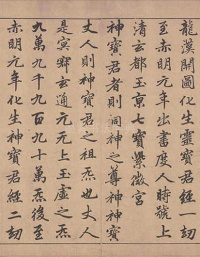 龍漢開圖化生靈寶君經一劫
至赤明元年出書度人時號上
清玄都玉京七寶紫微宮
神寶君者則同神之尊神神寶
丈人則神寶君之祖炁也丈人
是冥寂玄通元无上玉虛之炁
九萬九千九百九十萬炁後至
赤明元年化生神寶君經二劫